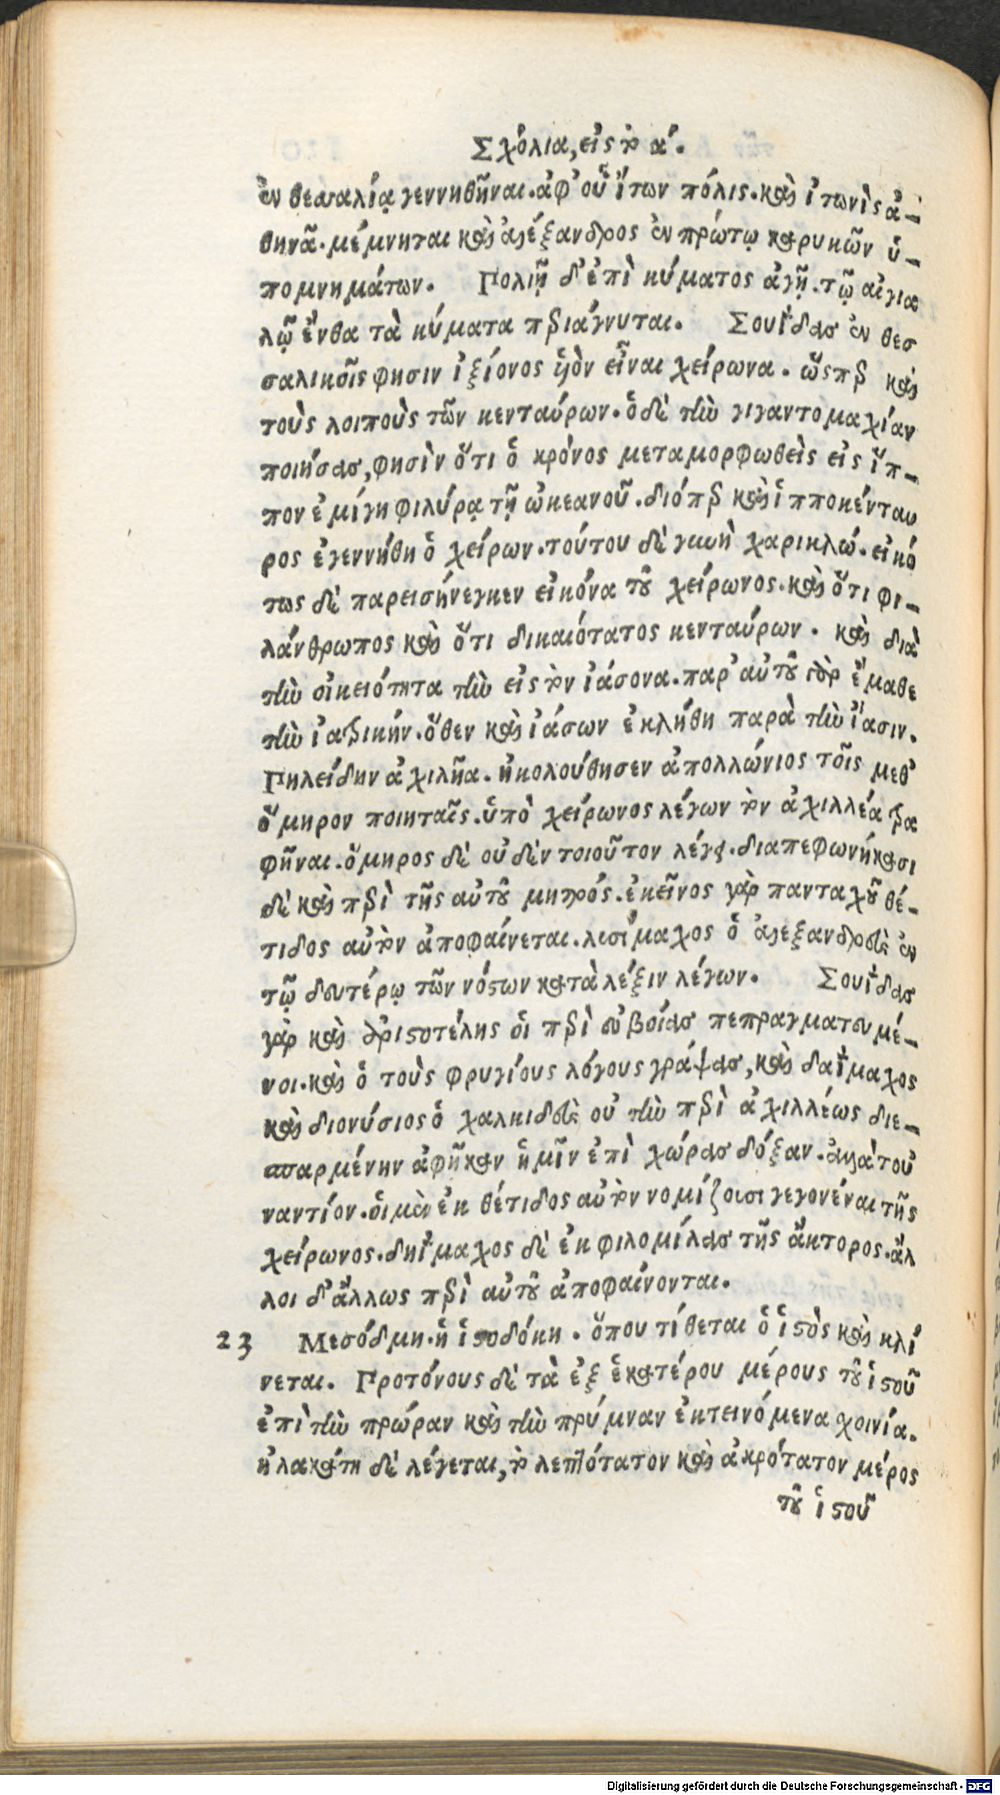 Σχόλια, εἰς τὸ αʹ.
ἐν θεσσαλίᾳ γεννηθῆναι. ἀφ' οὗ ἴτων πόλις. καὶ ἰτωνὶς ἀ-
θηνᾶ. μέμνηται καὶ ἀλέξανδρος ἐν πρώτῳ καρυκῶν ὑ-
πομνημάτων. Πολιῇ δ' ἐπὶ κύματος ἀγῇ. τῷ αἰγια
λῷ ἔνθα τὰ κύματα περιάγνυται. Σουΐδας ἐν θεσ
σαλικοῖς φησιν ἰξίονος ὑὸν εἶναι χείρωνα. ὥσπερ καὶ
τοὺς λοιποὺς τῶν κενταύρων. ὁ δὲ τὴν γιγαντομαχίαν
ποιήσας, φησὶν ὅτι ὁ κρόνος μεταμορφωθεὶς εἰς ἵπ-
πον ἐμίγη φιλύρᾳ τῇ ὠκεανοῦ. διόπερ καὶ ἱπποκένταυ
ρος ἐγεννήθη ὁ χείρων. τούτου δὲ γυνὴ χαρικλώ. εἰκό
τως δὲ παρεισήνεγκεν εἰκόνα τοῦ χείρωνος. καὶ ὅτι φι-
λάνθρωπος καὶ ὅτι δικαιότατος κενταύρων. καὶ διὰ
τὴν οἰκειότητα τὴν εἰς τὸν ἰάσονα. παρ' αὐτοῦ γὰρ ἔμαθε
τὴν ἰατρικήν. ὅθεν καὶ ἰάσων ἐκλήθη παρὰ τὴν ἴασιν.
Πηλείδην ἀχιλῆα. ἠκολούθησεν ἀπολλώνιος τοῖς μεθ'
ὅμηρον ποιηταῖς. ὑπὸ χείρωνος λέγων τὸν ἀχιλλέα τρα
φῆναι. ὅμηρος δὲ οὐδὲν τοιοῦτον λέγει. διαπεφωνήκασι
δὲ καὶ περὶ τῆς αὐτοῦ μητρός. ἐκεῖνος γὰρ πανταχοῦ θέ-
τιδος αὐτὸν ἀποφαίνεται. λυσίμαχος ὁ ἀλεξανδρεὺς ἐν
τῷ δευτέρῳ τῶν νόστων κατὰ λέξιν λέγων. Σουΐδας
γὰρ καὶ ἀριστοτέλης οἱ περὶ εὐβοίας πεπραγματευμέ-
νοι. καὶ ὁ τοὺς φρυγίους λόγους γράψας, καὶ δαΐμαχος
καὶ διονύσιος ὁ χαλκιδεὺς οὐ τὴν περὶ ἀχιλλέως διε-
σπαρμένην ἀφῆκαν ἡμῖν ἐπὶ χώρας δόξαν. ἀλλὰ τοὐ
ναντίον. οἱ μὲν ἐκ θέτιδος αὐτὸν νομίζουσι γεγονέναι τῆς
χείρωνος. δηΐμαχος δὲ ἐκ φιλομίλας τῆς ἄκτορος. ἄλ
λοι δ' ἄλλως περὶ αὐτοῦ ἀποφαίνονται.
23 Μεσόδμη. ἡ ἱστοδόκη. ὅπου τίθεται ὁ ἱστὸς καὶ κλί
νεται. Προτόνους δὲ τὰ ἐξ ἑκατέρου μέρους τοῦ ἱστοῦ
ἐπὶ τὴν πρώραν καὶ τὴν πρύμναν ἐκτεινόμενα σχοινία.
ἠλακάτη δὲ λέγεται, τὸ λεπτότατον καὶ ἀκρότατον μέρος
τοῦ ἱστοῦ
Digitalisierung gefördert durch die Deutsche Forschungsgemeinschaft - DFG